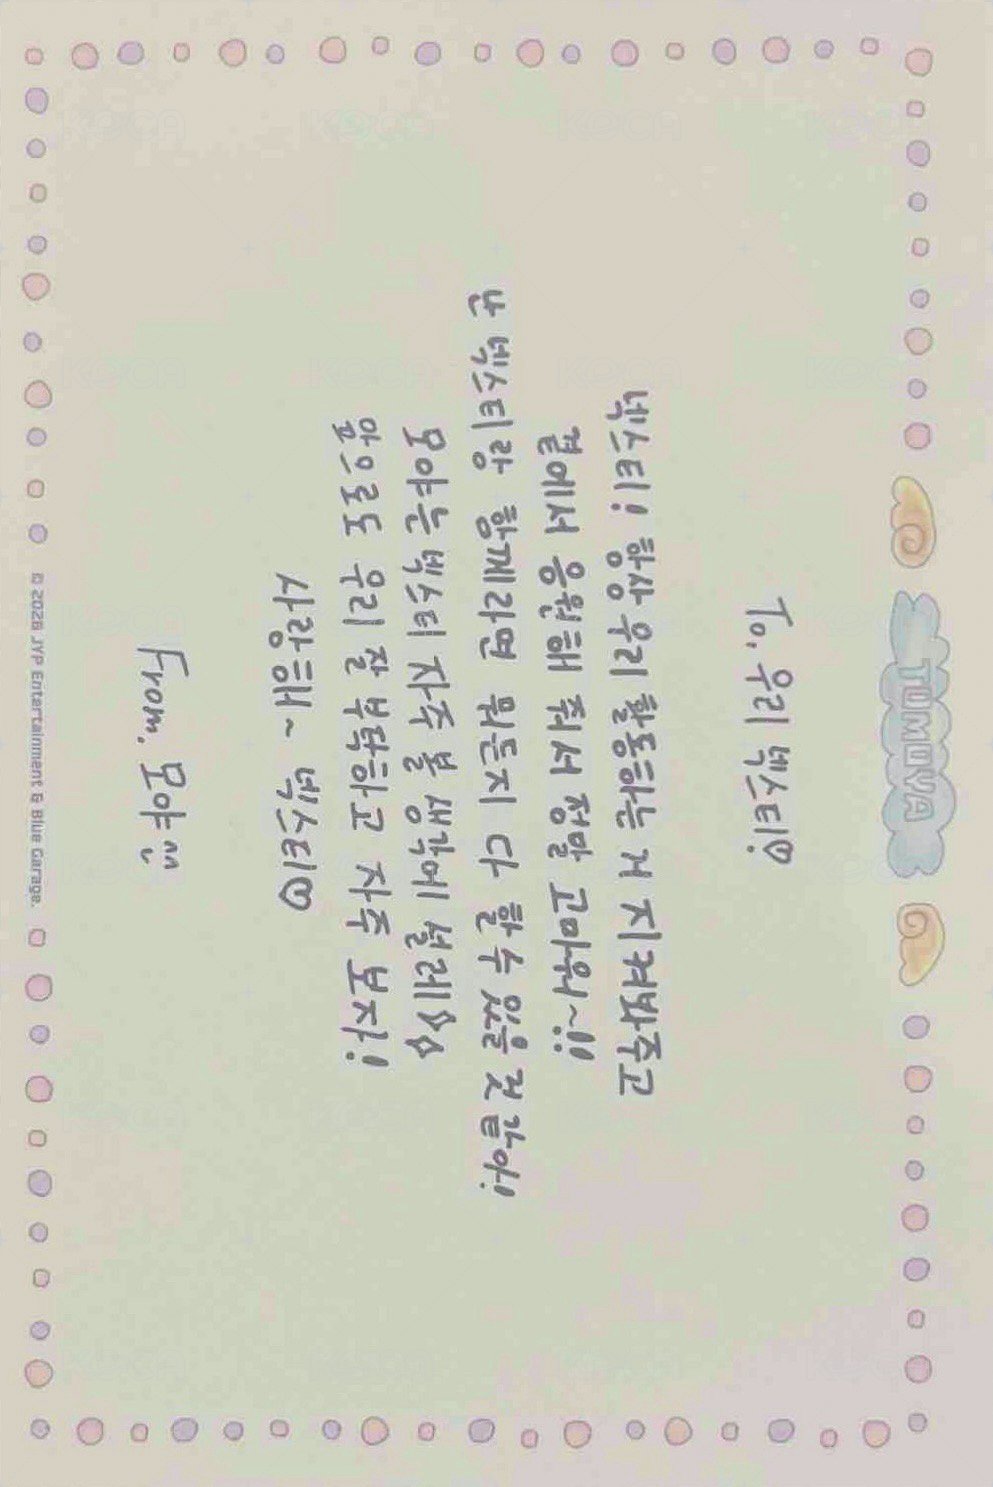 TOMOYA
To. 우리 넥스티!♡
넥스티! 항상 우리 활동하는 거 지켜봐주고
곁에서 응원해 줘서 정말 고마워~!!
난 넥스티랑 함께라면 뭐든지 다 할 수 있을 것 같아!
모야는 넥스티 자주 볼 생각에 설레
앞으로도 우리 잘 부탁하고 자주 보자!
사랑해~ 넥스티♡
From. 모야
© 2026 JYP Entertainment & Blue Garage.
KOCA